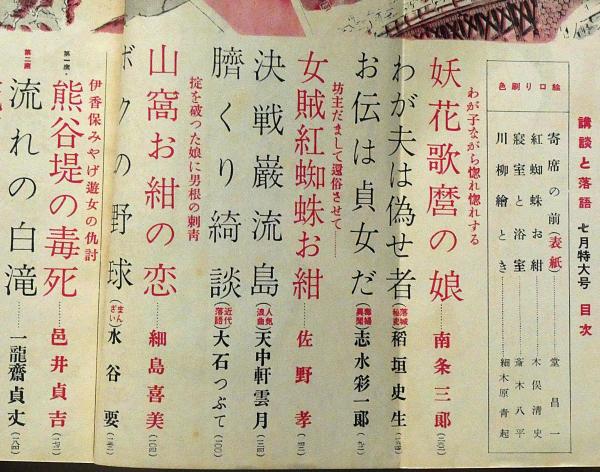 講談と落語 七月特大号 目次
色刷り口絵
寄席の前(表紙)……堂昌一
紅蜘蛛お紺……木俣清史
寝室と浴室……斎木八平
川柳繪とき……細木原青起
わが子ながら惚れ惚れする
妖花歌麿の娘……南条三郎
わが夫は偽せ者(落城秘史)稲垣史生
お伝は貞女だ(毒婦異聞)志水彩一郎
坊主だまして還俗させて……
女賊紅蜘蛛お紺……佐野孝
決戦巌流島(人気浪曲)天中軒雲月
臍くり綺談(近代落語)大石つぶて
掟を破った娘に男根の刺青
山窩お紺の恋……細島喜美
ボクの野球(まんざい)水谷要
伊香保みやげ遊女の仇討
第一席・熊谷堤の毒死……邑井貞吉
第二席 流れの白滝……一龍齋貞丈